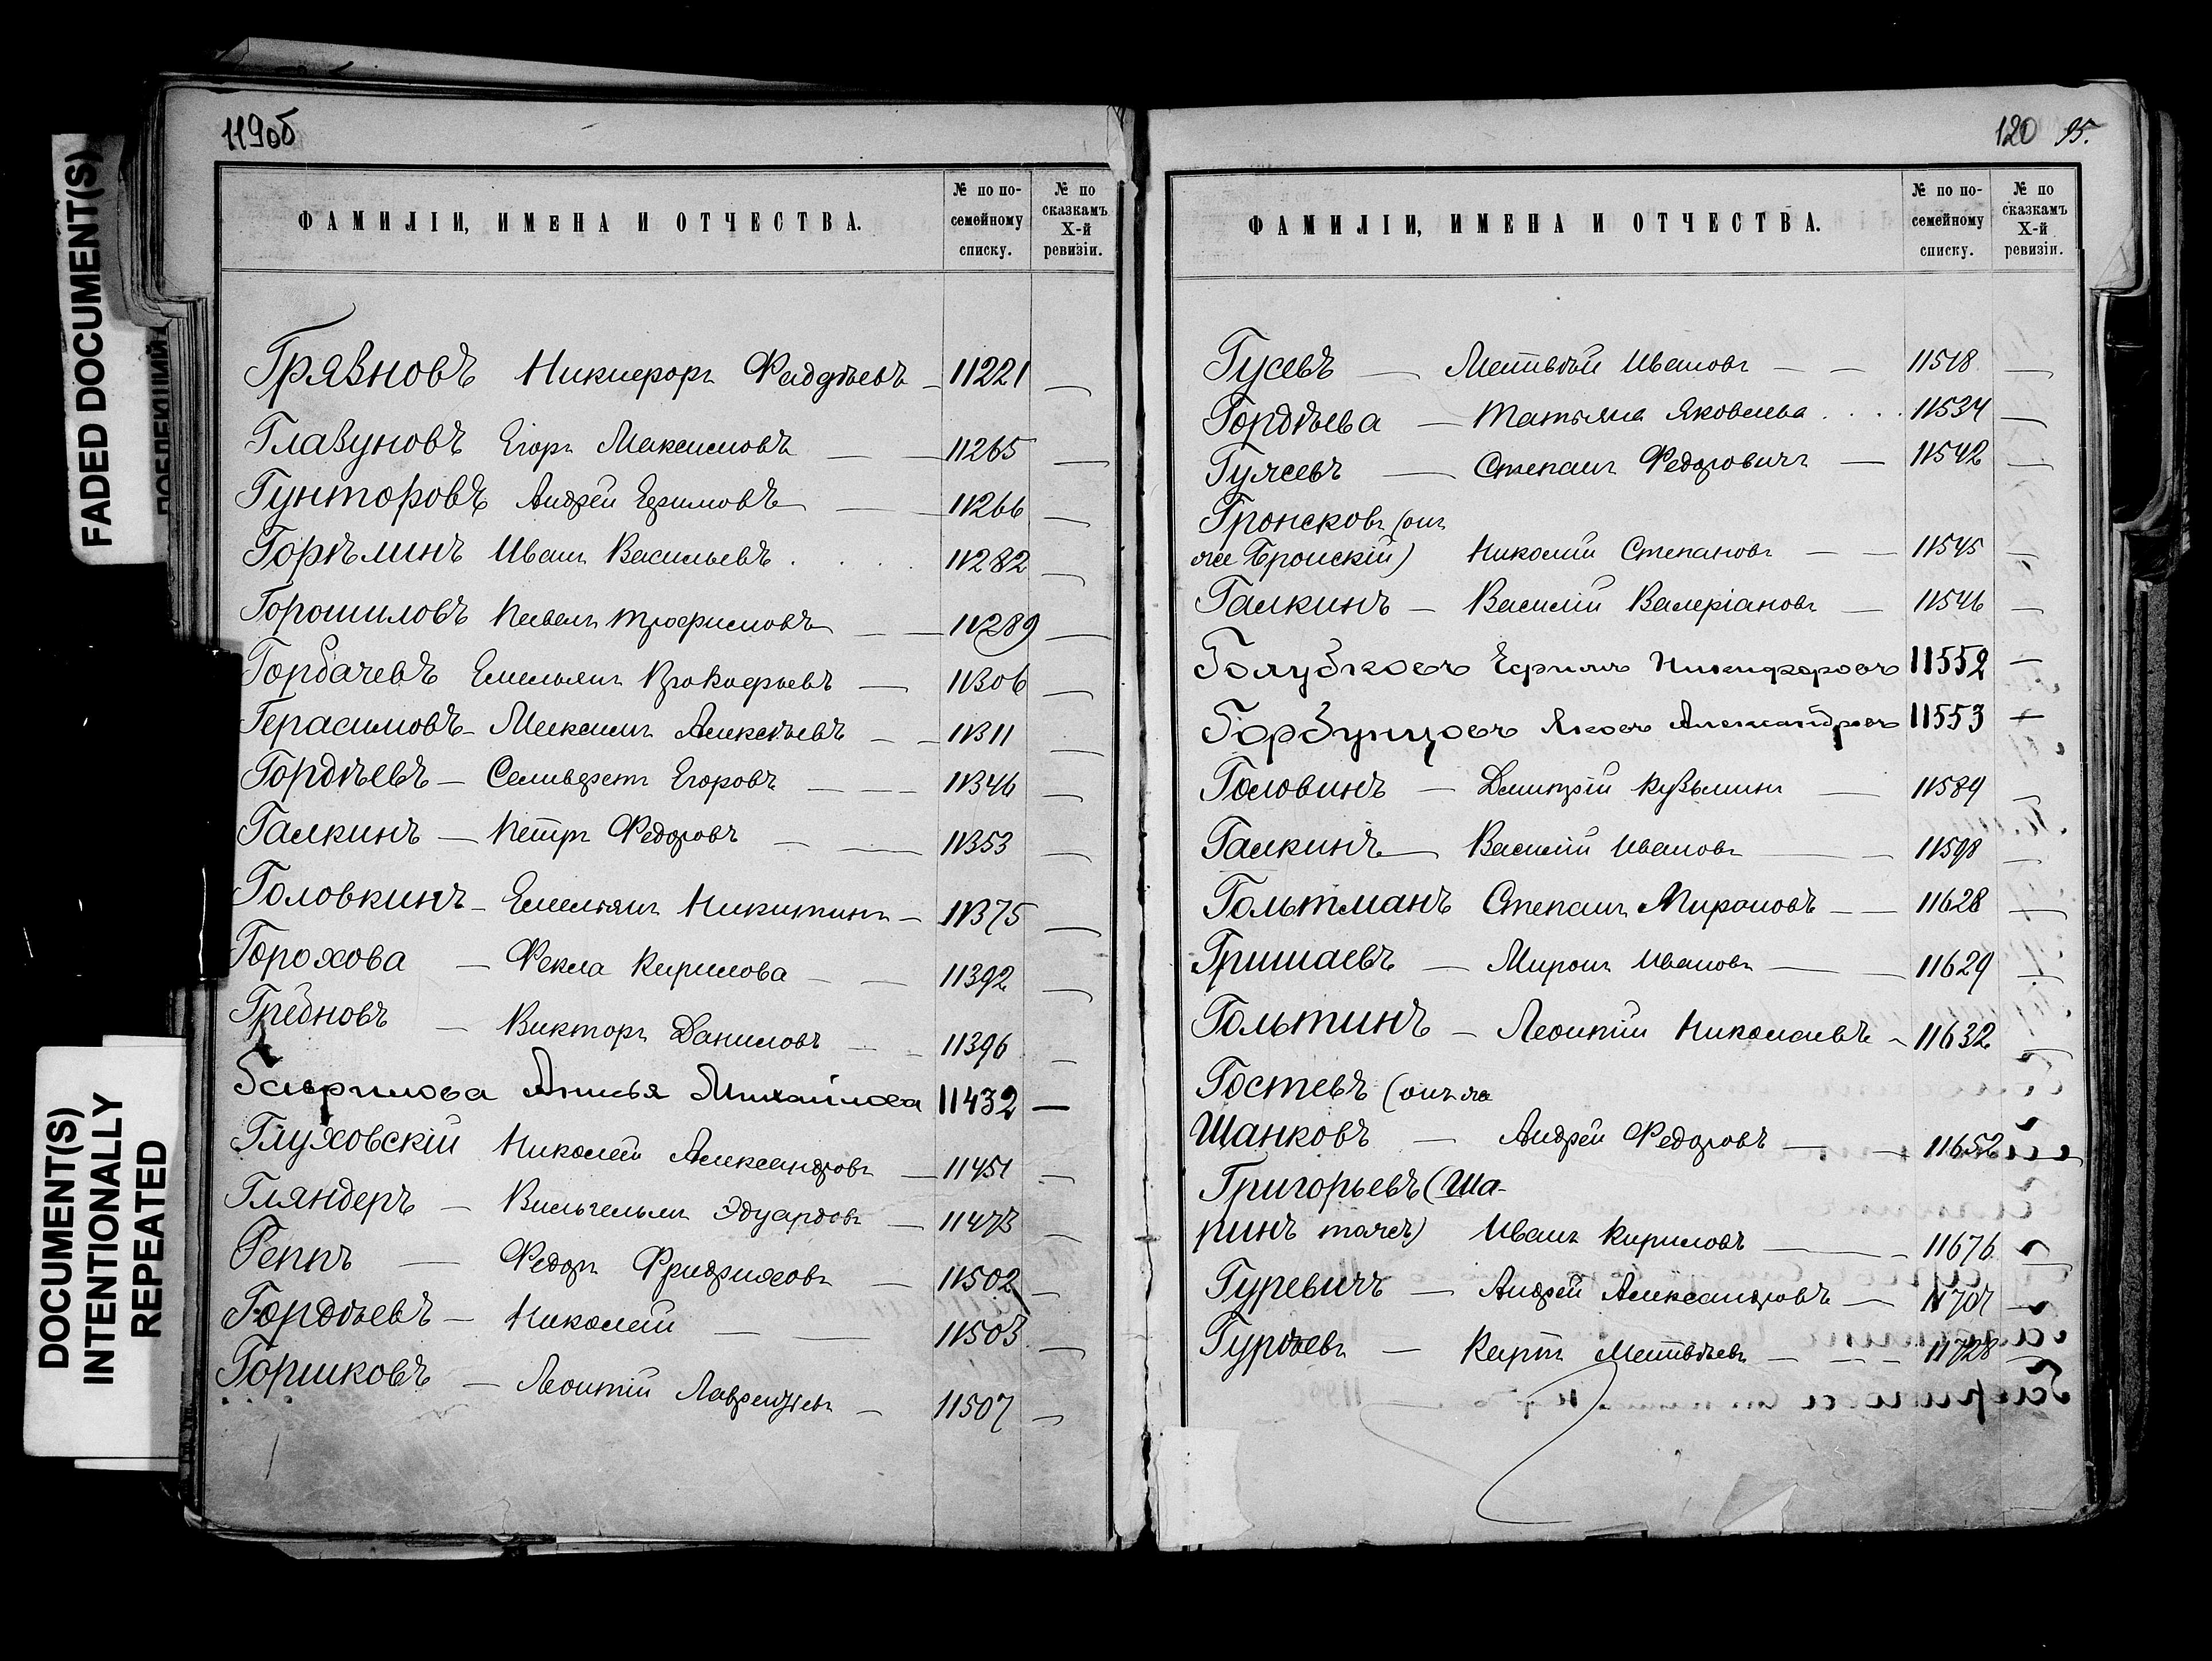 119об
ФАМИЛІИ, ИМЕНА И ОТЧЕСТВА.
№ по по-
семейному
списку.
№ по
сказкамъ
X-й
ревизіи.
Грязновъ Никифоръ Фаддѣевъ - 11221 —
Глазуновъ Егоръ Максимовъ — — 11265 —
Гунторовъ Андрей Ефимовъ — — 11266 —
Горѣлинъ Иванъ Васильевъ . . . . 11282 —
Горошиловъ Павелъ Трофимовъ — — 11289 —
Горбачевъ Емельянъ Прокофьевъ — 11306 —
Герасимовъ - Максимъ Алексѣевъ — — 11311 —
Гордѣевъ — Селиверстъ Егоровъ — — — 11346 —
Галкинъ — Петръ Федоровъ — — 11353 —
Головкинъ - Емельянъ Никитинъ — 11375 —
Горохова — Фекла Кирилова — — 11392 —
Гребновъ — Викторъ Даниловъ — - 11396 —
Гаврилова Анисья Михайлова 11432 —
Глуховскій Николай Александровъ — 11451 —
Гляндеръ — Вильгельмъ Эдуардовъ — 11473 —
Репнъ — Федоръ Фридриховъ — 11502 —
Гордѣевъ — Николай — — 11503 —
Горшковъ — Леонтій Лаврентьевъ — 11507 —
120 95.
ФАМИЛІИ, ИМЕНА И ОТЧЕСТВА.
№ по по-
семейному
списку.
№ по
сказкамъ
X-й
ревизіи.
Гусевъ — Матвѣй Ивановъ — — 11518 —
Гордѣева — Татьяна Яковлева . . . 11534 —
Гуляевъ — Степанъ Федоровичъ — 11542 —
Гронсковъ (онъ
же Бронскій) Николай Степановъ — — 11545 —
Галкинъ — Василій Валеріановъ — 11546 —
Голубковъ Ефимъ Никифоровъ 11552 —
Горбунцовъ Яковъ Александровъ 11553 —
Головинъ — Дмитрій Кузьминъ — 11589 —
Галкинъ — Василій Ивановъ — — 11598 —
Гольтманъ Степанъ Мироновъ — — 11628 —
Гришаевъ — Миронъ Ивановъ — — 11629 —
Гольтинъ — Леонтій Николаевъ - 11632 —
Гостевъ (онъ же
Шанковъ — Андрей Федоровъ — — 11652 —
Григорьевъ (Ша-
ринъ тожъ) Иванъ Кириловъ — — - 11676 —
Гуревичъ — Андрей Александровъ — 11707 —
Гурьевъ — Карпъ Матвѣевъ — — — 11728 —
FADED DOCUMENT(S)
DOCUMENT(S)
INTENTIONALLY
REPEATED